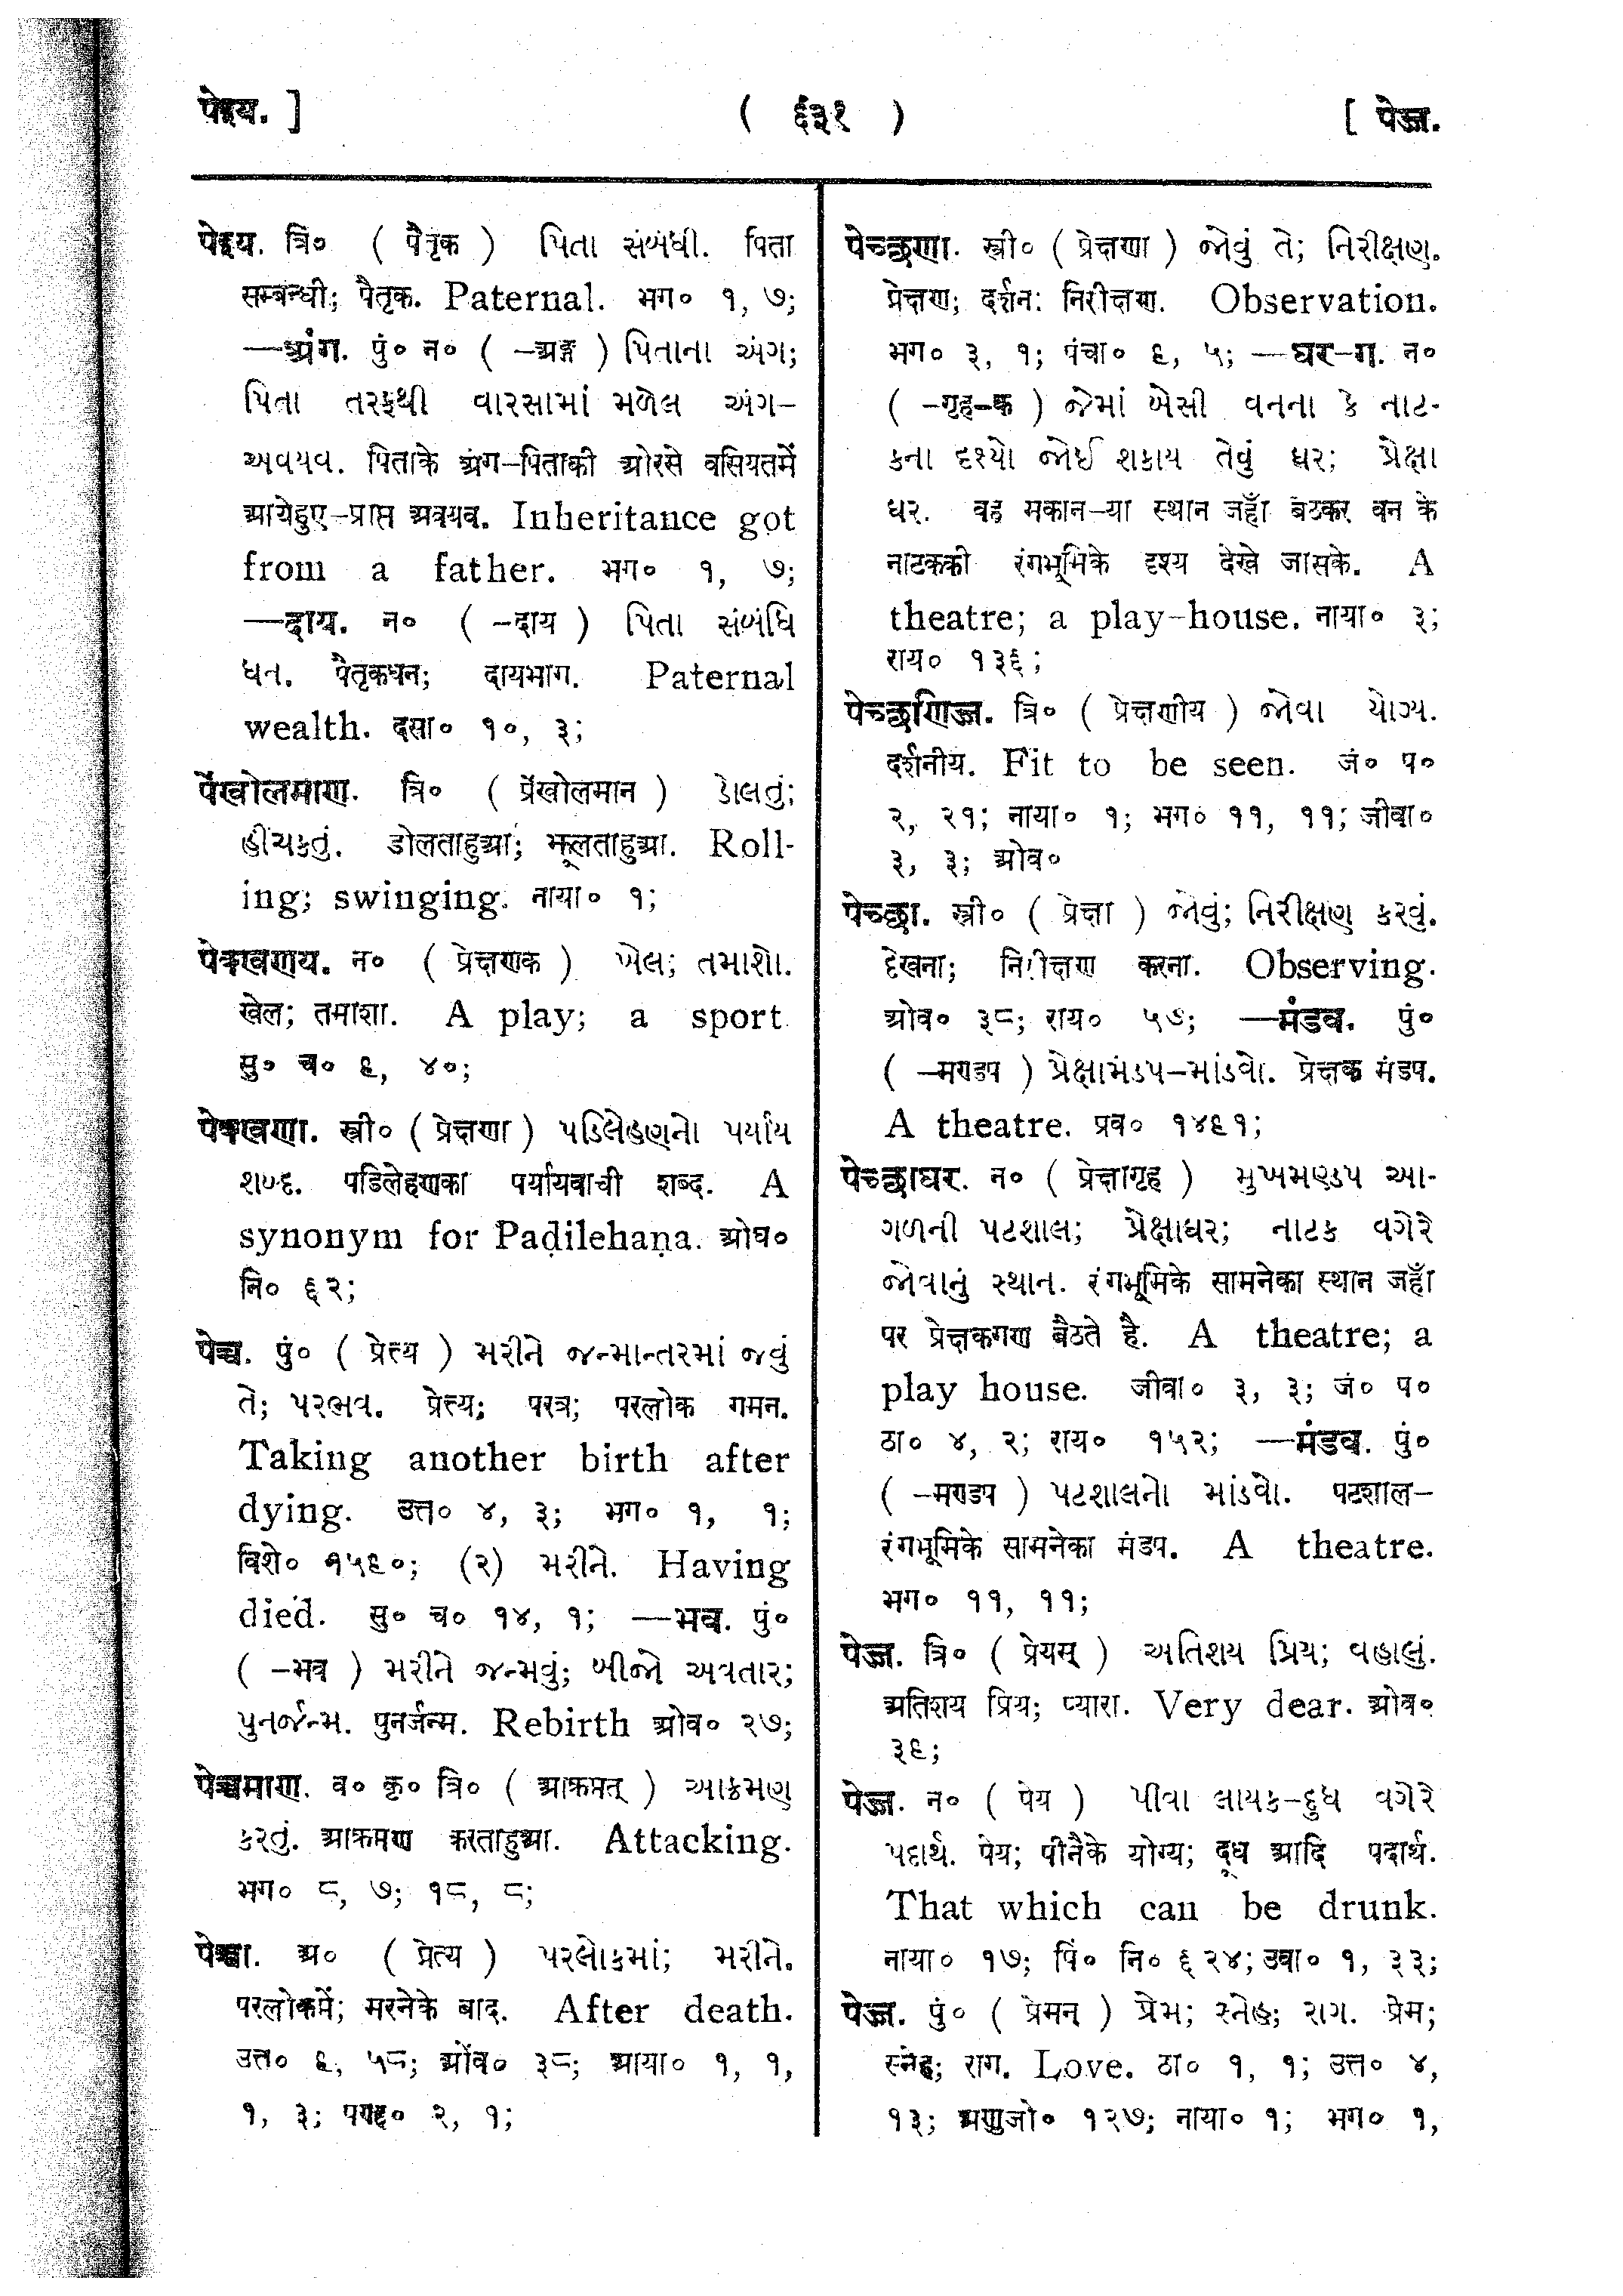 पेइय. ] ( ६३१ ) [ पेज्ज.
पेइय. त्रि० ( पैतृक ) પિતા સંબંધી. पिता
सम्बन्धी; पैतृक. Paternal. भग० १, ७;
—अंग. पुं० न० ( -अङ्ग ) પિતાના અંગ;
પિતા તરફથી વારસામાં મળેલ અંગ-
અવયવ. पिताके अंग-पिताकी ओरसे वसियतमें
आयेहुए-प्राप्त अवयव. Inheritance got
from a father. भग० १, ७;
—दाय. न० ( -दाय ) પિતા સંબંધિ
ધન. पैतृकधन; दायभाग. Paternal
wealth. दसा० १०, ३;
पेंखोलमाण. त्रि० ( प्रेंखोलमान ) ડોલતું;
હીંચકતું. डोलताहुआ; झूलताहुआ. Roll-
ing; swinging. नाया० १;
पेक्खणय. न० ( प्रेक्षणक ) ખેલ; તમાશો.
खेल; तमाशा. A play; a sport
सु० च० ६, ४०;
पेक्खणा. स्त्री० ( प्रेक्षणा ) પડિલેહણનો પર્યાય
શબ્દ. पडिलेहणका पर्यायवाची शब्द. A
synonym for Paḍilehaṇa. ओघ०
नि० ६२;
पेच्च. पुं० ( प्रेत्य ) મરીને જન્માન્તરમાં જવું
તે; પરભવ. प्रेत्य; परत्र; परलोक गमन.
Taking another birth after
dying. उत्त० ४, ३; भग० १, १;
विशे० १५६०; (२) મરીને. Having
died. सु० च० १४, १; —भव. पुं०
( -भव ) મરીને જન્મવું; બીજો અવતાર;
પુનર્જન્મ. पुनर्जन्म. Rebirth ओव० २७;
पेच्चमाण. व० कृ० त्रि० ( आक्रमत् ) આક્રમણ
કરતું. आक्रमण करताहुआ. Attacking.
भग० ८, ७; १८, ८;
पेच्चा. अ० ( प्रेत्य ) પરલોકમાં; મરીને.
परलोकमें; मरनेके बाद. After death.
उत्त० ६, ५८; ओव० ३८; आया० १, १,
१, ३; पण्ह० २, १;
पेच्छणा. स्त्री० ( प्रेक्षणा ) જોવું તે; નિરીક્ષણ.
प्रेक्षण; दर्शन: निरीक्षण. Observation.
भग० ३, १; पंचा० ६, ५; —घर-ग. न०
( -गृह-क ) જેમાં બેસી વનના કે નાટ-
કના દૃશ્યો જોઈ શકાય તેવું ઘર; પ્રેક્ષા
ઘર. वह मकान-या स्थान जहाँ बैठकर वन के
नाटककी रंगभूमिके दृश्य देखे जासके. A
theatre; a play-house. नाया० ३;
राय० १३६;
पेच्छणिज्ज. त्रि० ( प्रेक्षणीय ) જોવા યોગ્ય.
दर्शनीय. Fit to be seen. जं० प०
२, २१; नाया० १; भग० ११, ११; जीवा०
३, ३; ओव०
पेच्छा. स्त्री० ( प्रेक्षा ) જોવું; નિરીક્ષણ કરવું.
देखना; निरीक्षण करना. Observing.
ओव० ३८; राय० ५७; —मंडव. पुं०
( -मण्डप ) પ્રેક્ષામંડપ-માંડવો. प्रेक्षक मंडप.
A theatre. प्रव० १४६१;
पेच्छाघर. न० ( प्रेक्षागृह ) મુખમણ્ડપ આ-
ગળની પટશાલ; પ્રેક્ષાઘર; નાટક વગેરે
જોવાનું સ્થાન. रंगभूमिके सामनेका स्थान जहाँ
पर प्रेक्षकगण बैठते है. A theatre; a
play house. जीवा० ३, ३; जं० प०
ठा० ४, २; राय० १५२; —मंडव. पुं०
( -मण्डप ) પટશાલનો માંડવો. पटशाल-
रंगभूमिके सामनेका मंडप. A theatre.
भग० ११, ११;
पेज्ज. त्रि० ( प्रेयस् ) અતિશય પ્રિય; વહાલું.
अतिशय प्रिय; प्यारा. Very dear. ओव०
३६;
पेज्ज. न० ( पेय ) પીવા લાયક-દુધ વગેરે
પદાર્થ. पेय; पीनैके योग्य; दूध आदि पदार्थ.
That which can be drunk.
नाया० १७; पिं० नि० ६२४; उवा० १, ३३;
पेज्ज. पुं० ( प्रेमन् ) પ્રેમ; સ્નેહ; રાગ. प्रेम;
स्नेह; राग. Love. ठा० १, १; उत्त० ४,
१३; अणुजो० १२७; नाया० १; भग० १,